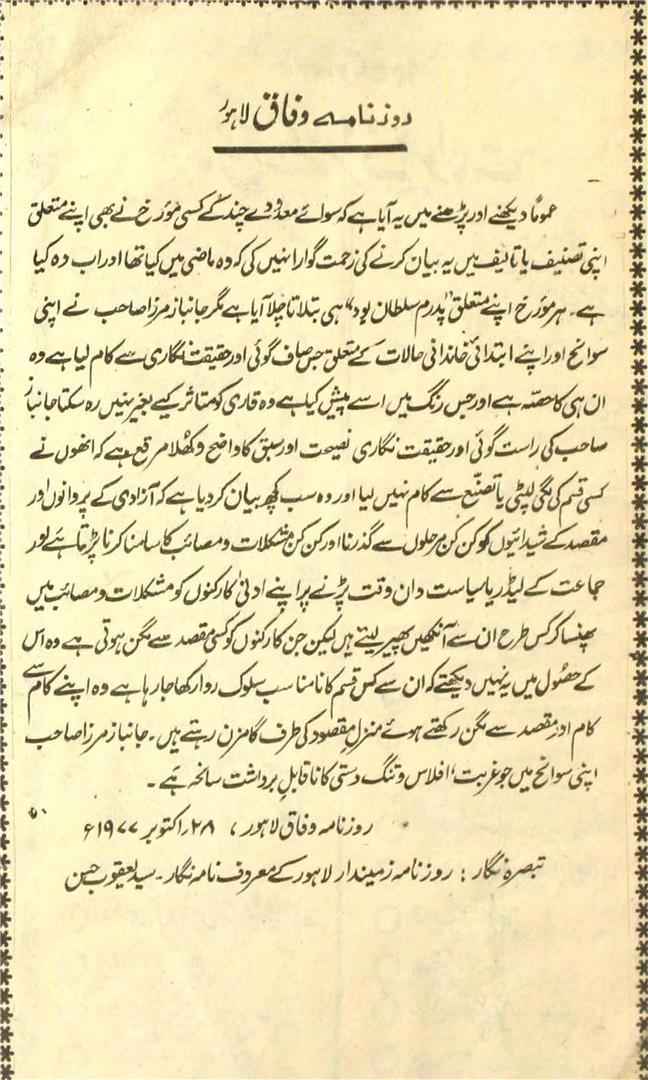 روزنامہ وفاق لاہور
عموماً دیکھنے اور پڑھنے میں یہ آیا ہے کہ سوائے معدودے چند کے کسی مؤرخ نے بھی اپنے متعلق
اپنی تصنیف یا تالیف میں یہ بیان کرنے کی زحمت گوارا نہیں کی کہ وہ ماضی میں کیا تھا اور اب وہ کیا
ہے۔ ہر مؤرخ اپنے متعلق "پدرم سلطان بود" ہی بتلاتا چلا آیا ہے مگر جانباز مرزا صاحب نے اپنی
سوانح اور اپنے ابتدائی خاندانی حالات کے متعلق جس صاف گوئی اور حقیقت نگاری سے کام لیا ہے وہ
ان ہی کا حصّہ ہے اور جس رنگ میں اسے پیش کیا ہے وہ قاری کو متاثر کیے بغیر نہیں رہ سکتا جانباز
صاحب کی راست گوئی اور حقیقت نگاری نصیحت اور سبق کا واضح و کھُلا مرقع ہے کہ انھوں نے
کسی قسم کی لگی لپٹی یا تصنّع سے کام نہیں لیا اور وہ سب کچھ بیان کر دیا ہے کہ آزادی کے پروانوں اور
مقصد کے شیدائیوں کو کن کن مرحلوں سے گذرنا اور کن کن مشکلات و مصائب کا سامنا کرنا پڑتا ہے اور
جماعت کے لیڈر یا سیاست دان وقت پڑنے پر اپنے ادنیٰ کارکنوں کو مشکلات و مصائب میں
پھنسا کر کس طرح ان سے آنکھیں پھیر لیتے ہیں لیکن جن کارکنوں کو کسی مقصد سے لگن ہوتی ہے وہ اس
کے حصُول میں یہ نہیں دیکھتے کہ ان سے کس قسم کا نامناسب سلوک روا رکھا جا رہا ہے وہ اپنے کام سے
کام اور مقصد سے لگن رکھتے ہوئے منزلِ مقصود کی طرف گامزن رہتے ہیں۔ جانباز مرزا صاحب
اپنی سوانح میں جو غربت، افلاس و تنگ دستی کا ناقابلِ برداشت سانحہ ہے۔
روزنامہ وفاق لاہور، ۲۸، اکتوبر ۱۹۷۷ء
تبصرہ نگار: روزنامہ زمیندار لاہور کے معروف نامہ نگار۔ سید یعقوب حسن